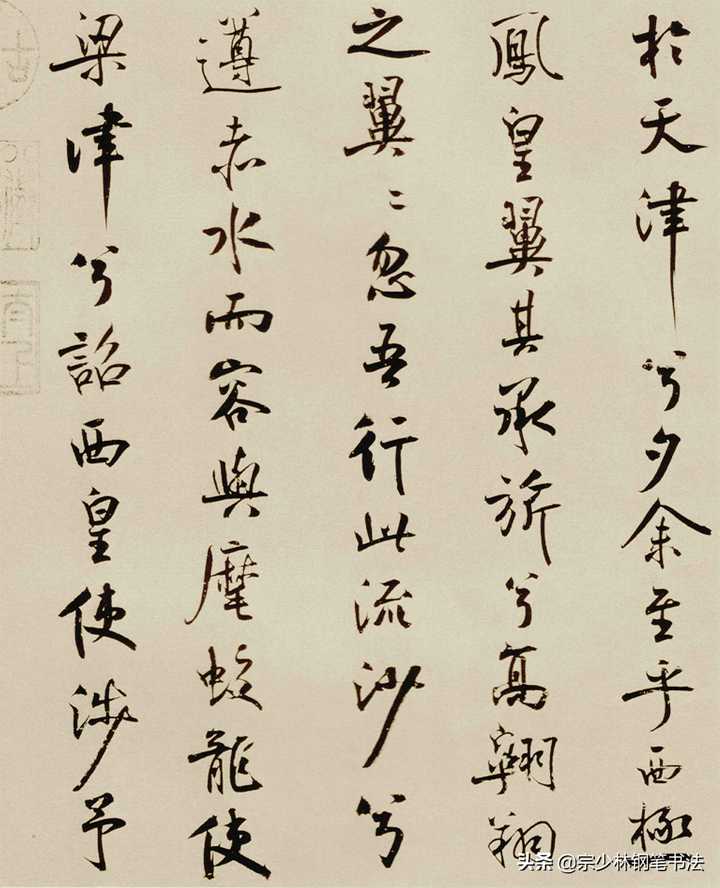 於天津兮夕余至乎西極
鳳皇翼其承旂兮高翱翔
之翼〻忽吾行此流沙兮
遵赤水而容與麾蛟龍使
梁津兮詔西皇使涉予
头条 @宗少林钢笔书法